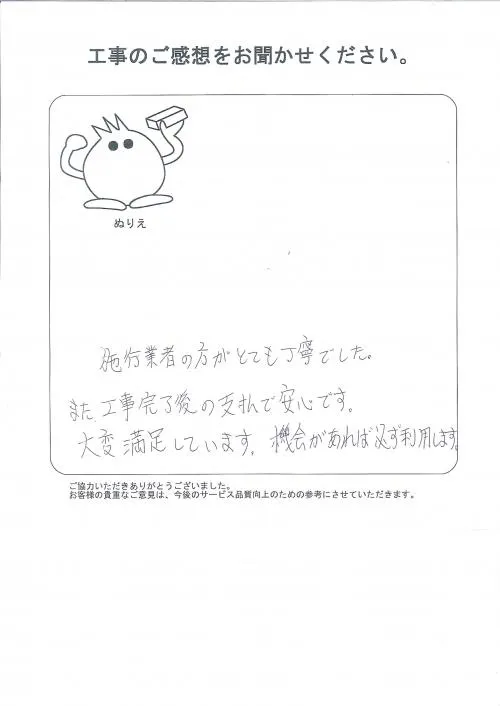 工事のご感想をお聞かせください。
ぬりえ
施行業者の方がとても丁寧でした。
また工事完了後の支払で安心です。
大変満足しています。機会があれば必ず利用します。
ご協力いただきありがとうございました。
お客様の貴重なご意見は、今後のサービス品質向上のための参考にさせていただきます。